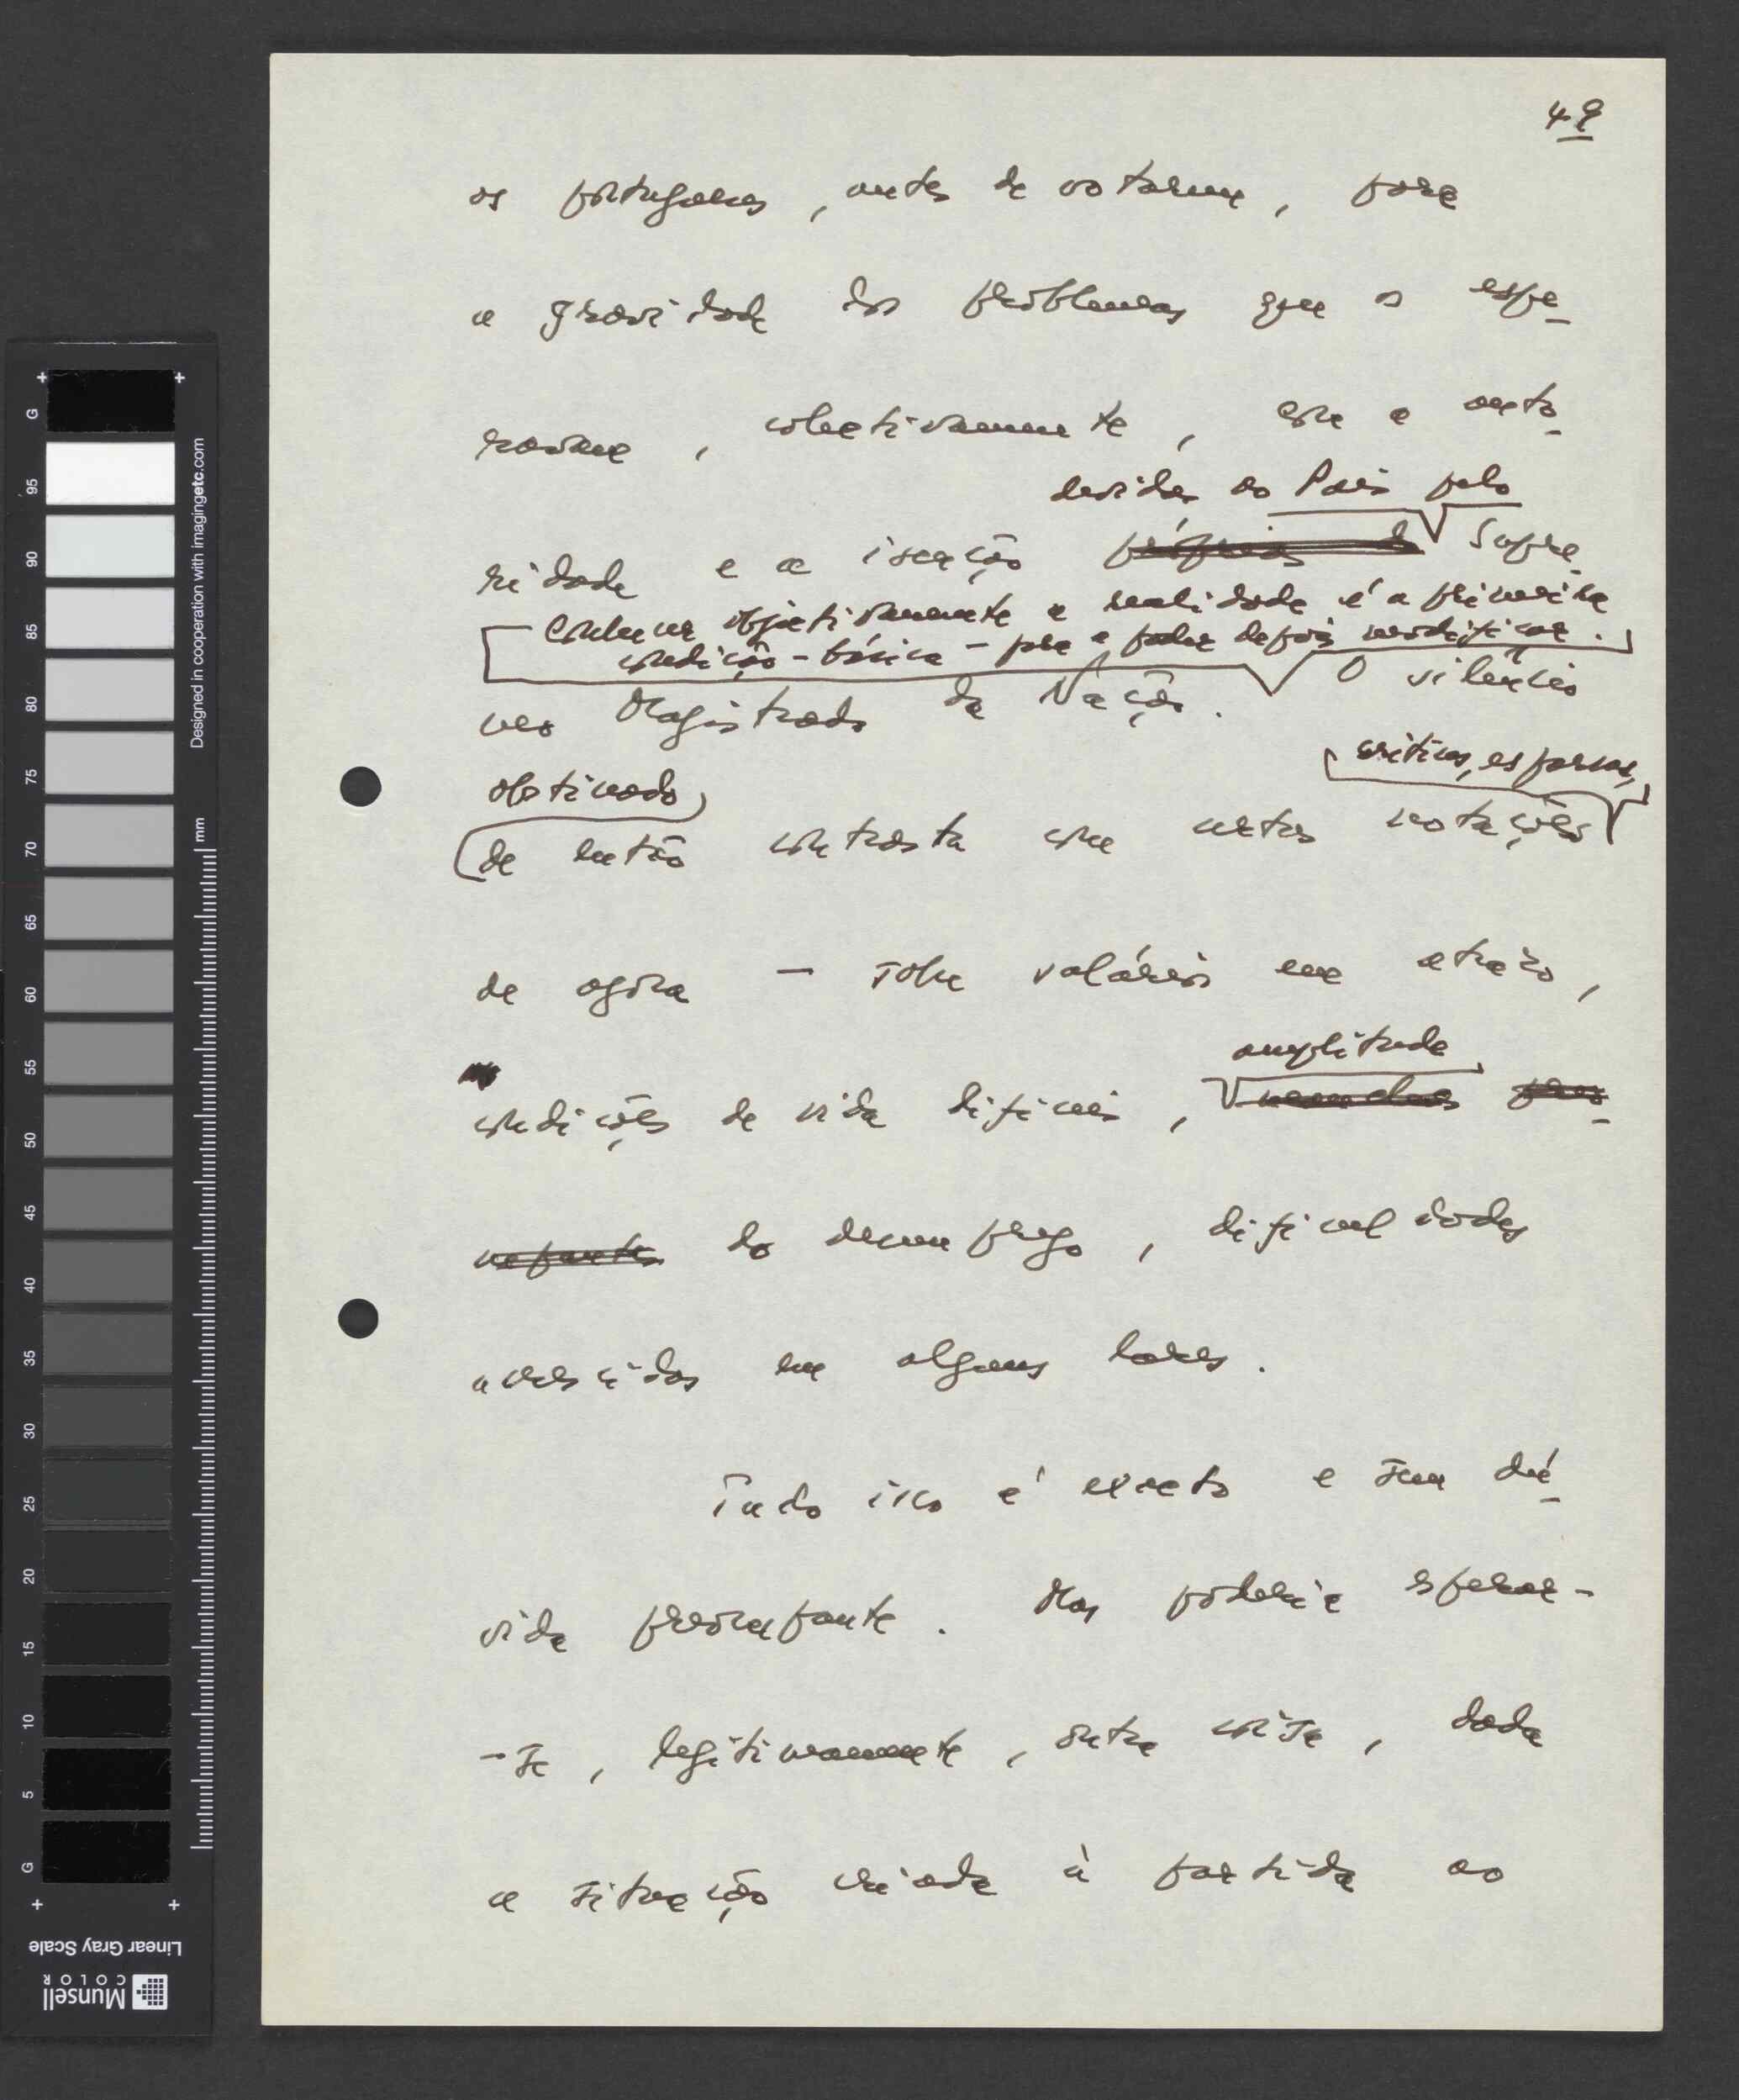 4º
os portugueses, antes de votarem, para
a gravidade dos problemas que os espe-
ravam, colectivamente, com a auto-
devidas ao País pelo
ridade e a isenção próprias do Supre-
Conhecer objectivamente a realidade é a primeira
condição - básica - para a poder depois modificar.
mo Magistrado da Nação. O silêncio
obstinado
críticas, esparsas,
de então contrasta com certas notações
de agora - sobre salários em atraso,
amplitude
condições de vida difíceis, preo-
cupantes do desemprego, dificuldades
acrescidas em alguns lares.
Tudo isso é exacto e sem dú-
vida preocupante. Mas poderia esperar-
-se, legitimamente, outra coisa, dada
a situação criada à partida ao
G 95 90 85 80 75 70 65 60 55 50 45 40 35 30 25 20 15 10 5 G
mm
Designed in cooperation with imagingetc.com
Linear Gray Scale
Munsell
COLOR